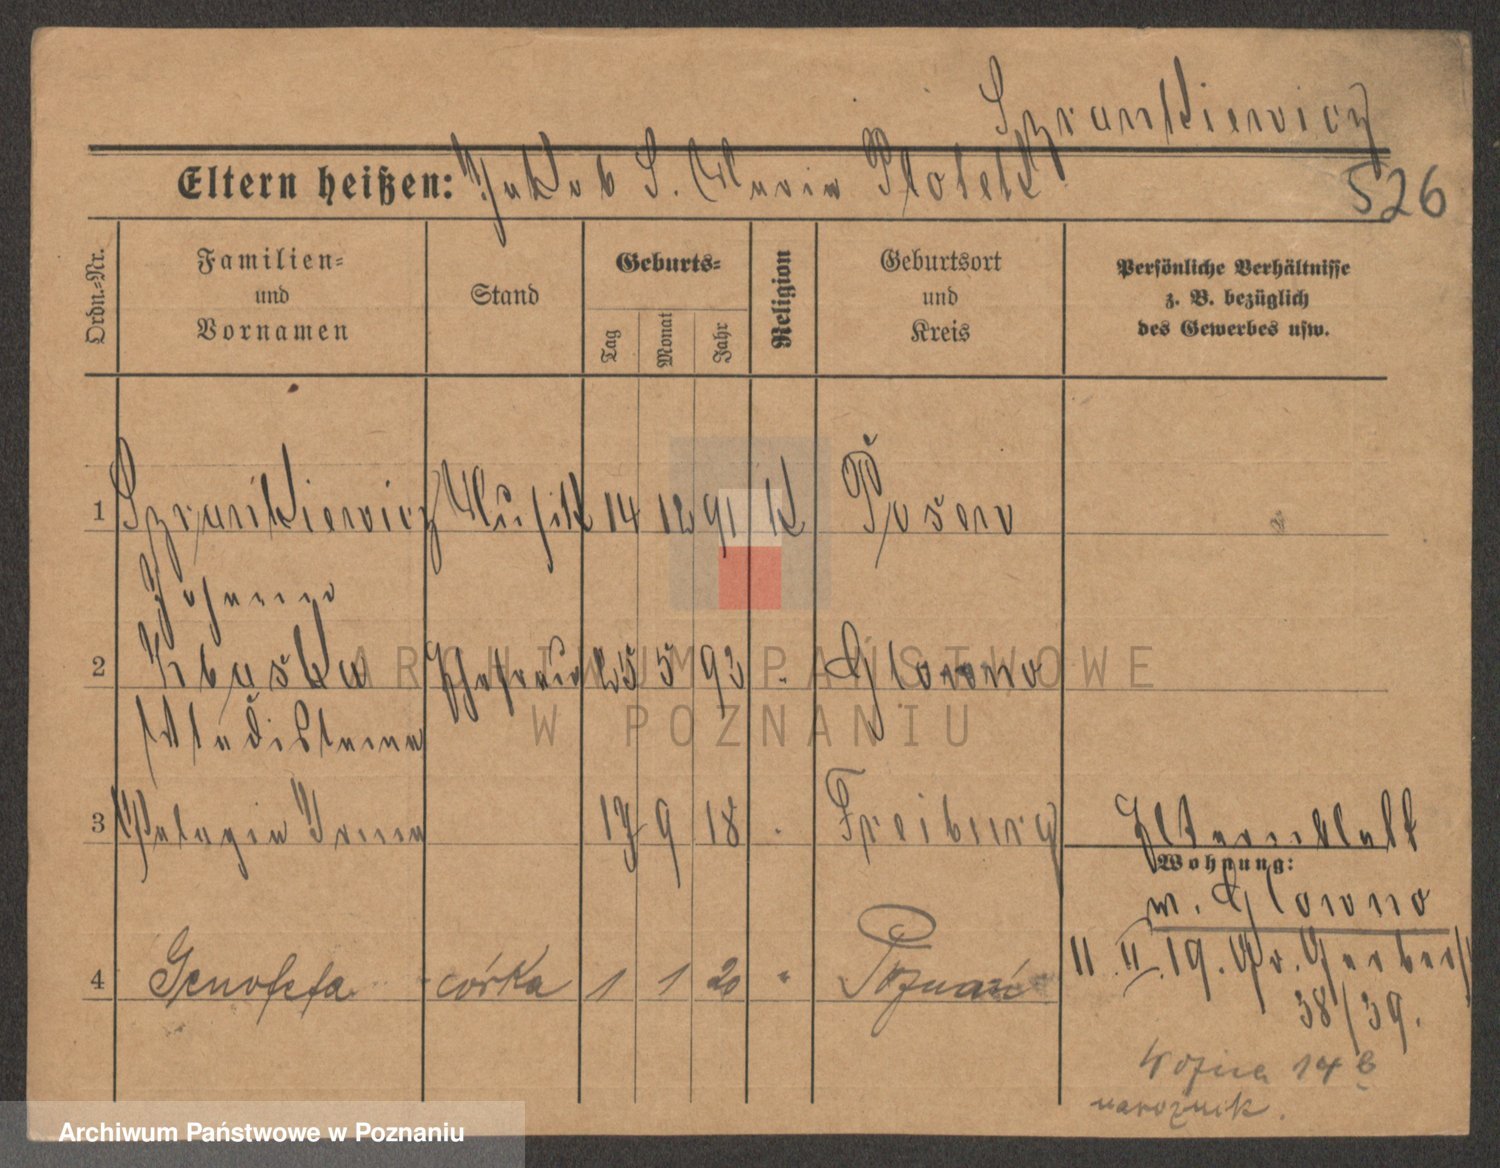 Szrankiewicz
Eltern heißen: Jakob S. Maria Plotek
526
Ordn.-Nr.
Familien-
und
Vornamen
Stand
Geburts-
Tag
Monat
Jahr
Religion
Geburtsort
und
Kreis
Persönliche Verhältnisse
z. B. bezüglich
des Gewerbes usw.
1 Szrankiewicz Musik 14 12 91 K Posen
Johann
2 Ehefrau 25 5 93 " Glowno
Wladislawa
3 Pelagia Irena 17 9 18 " Freiburg
Elternblatt
Wohnung:
w. Glowno
4 Genofefa córka 1 1 20 " Poznań
11.II.19. Gr. Gerberst
38/39.
14 B
narożnik.
ARCHIWUM PAŃSTWOWE
W POZNANIU
Archiwum Państwowe w Poznaniu